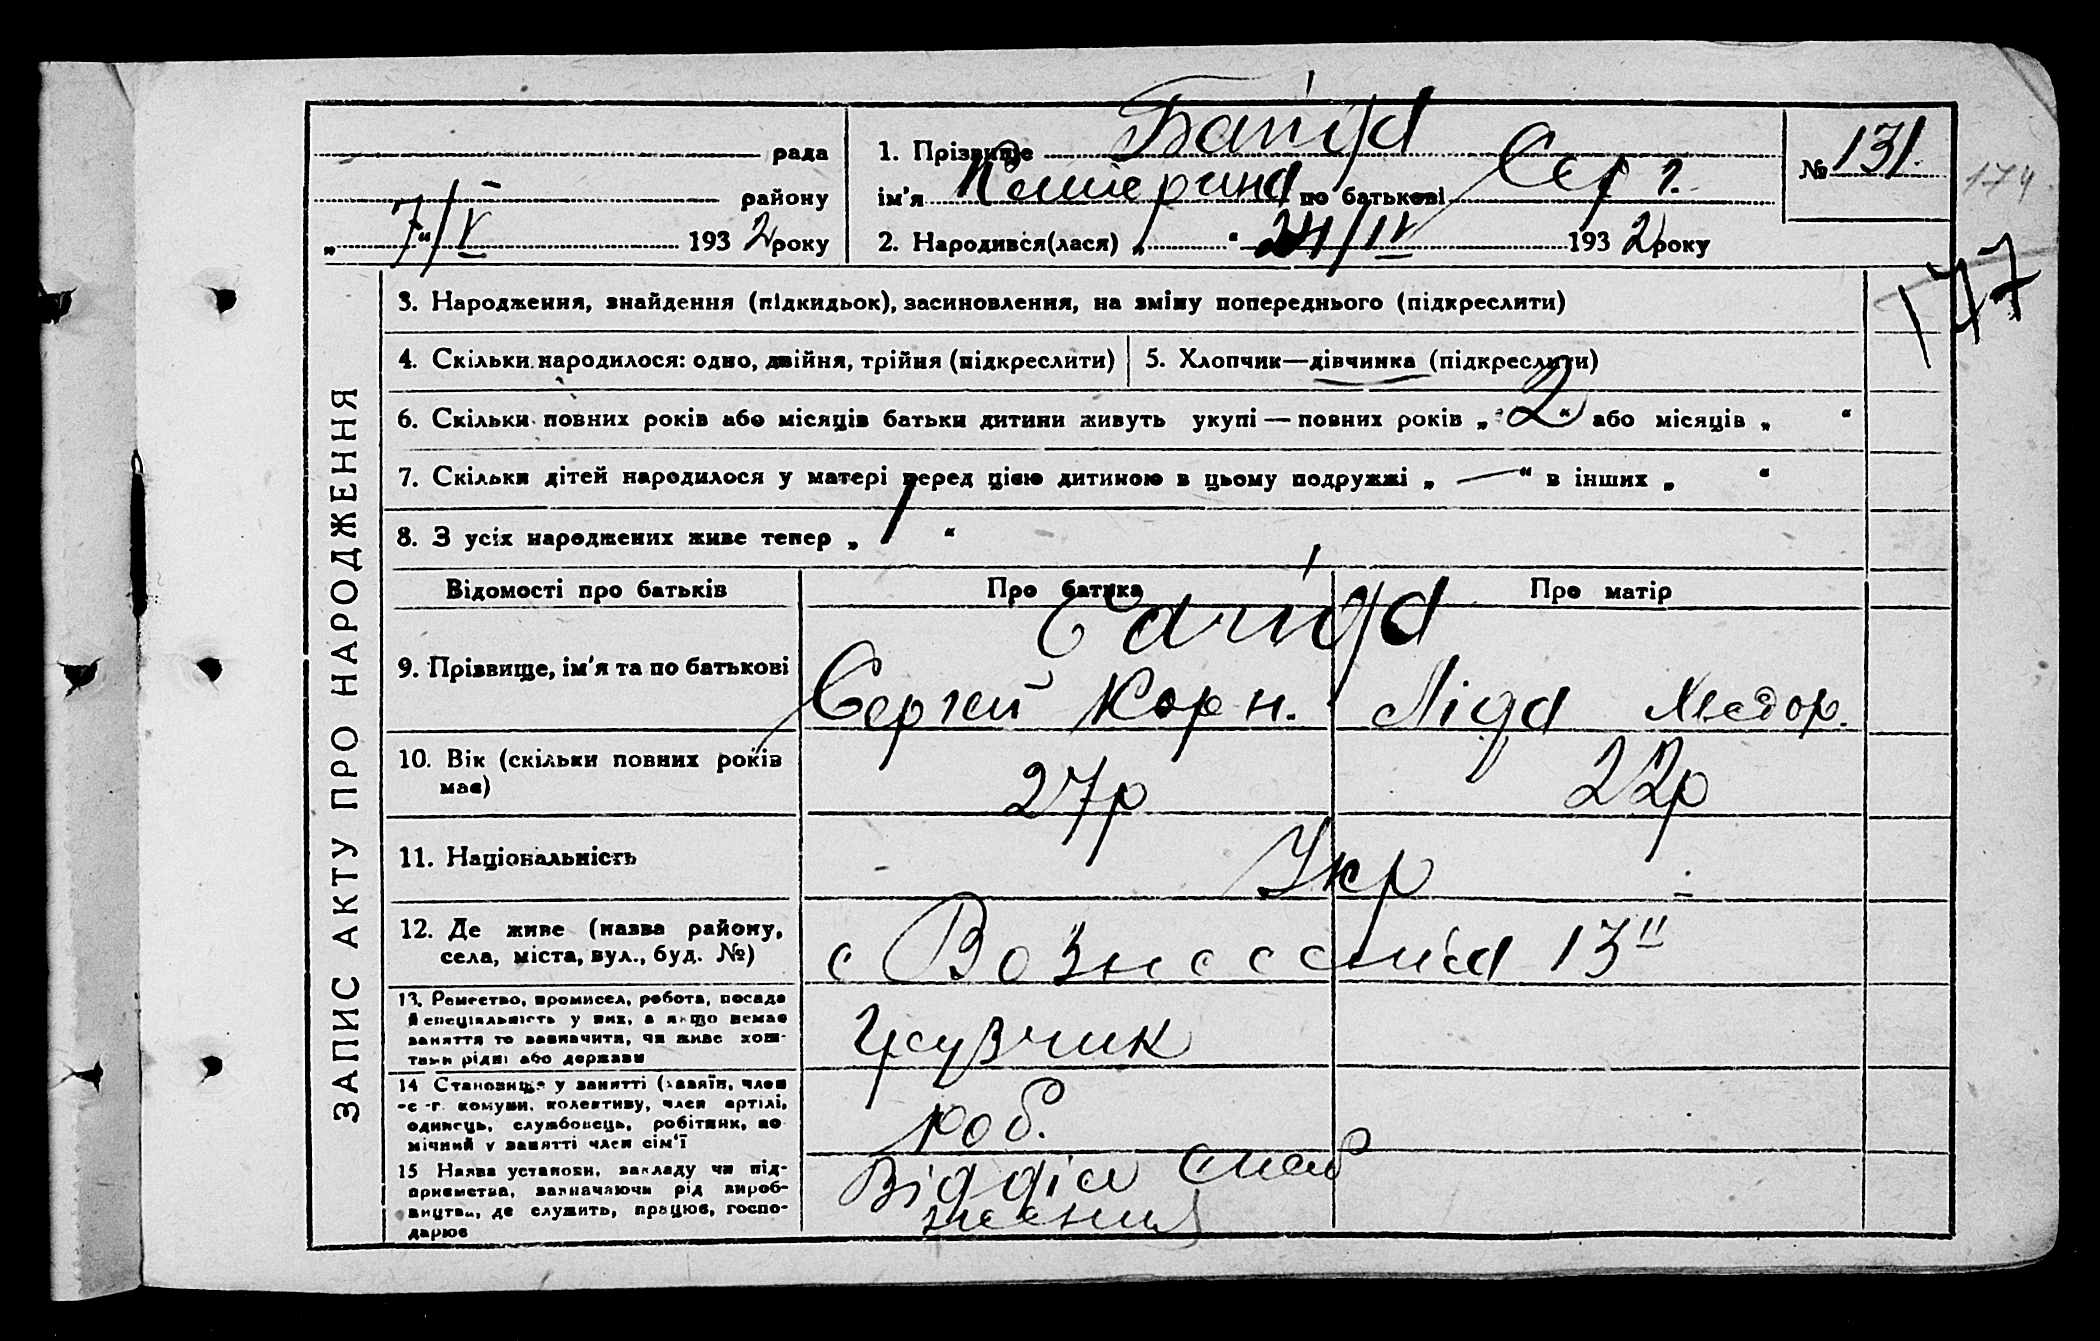 рада
району
„ 7 “ / V 193 2 року
1. Прізвище Байда
ім'я Катерина по батькові Серг.
2. Народився(лася) „ “ 24/IV 193 2 року
№ 131.
174.
177
ЗАПИС АКТУ ПРО НАРОДЖЕННЯ
3. Народження, знайдення (підкидьок), засиновлення, на зміну попереднього (підкреслити)
4. Скільки народилося: одно, двійня, трійня (підкреслити)
5. Хлопчик—дівчинка (підкреслити)
6. Скільки повних років або місяців батьки дитини живуть укупі — повних років „ 2 “ або місяців „ “
7. Скільки дітей народилося у матері перед цією дитиною в цьому подружжі „ — “ в інших „ “
8. З усіх народжених живе тепер „ 1 “
Відомості про батьків
Про батька
Про матір
9. Прізвище, ім'я та по батькові
Байда
Сергей Корн.
Ліда
10. Вік (скільки повних років
має)
27р
22р
11. Національність
Укр
12. Де живе (назва району,
села, міста, вул., буд. №)
с Вознесенка 13
13. Ремество, промисел, робота, посада
й спеціяльність у них, а якщо немає
заняття то зазначити, чи живе кош-
тами рідні або держави
Грузчик
14 Становище у занятті (хазяїн, член
с.-г. комуни, колективу, член артілі,
одинець, службовець, робітник, по-
мічний у занятті член сім'ї
роб.
15 Назва установи, закладу чи під-
приємства, зазначаючи рід вироб-
ництва, де служить, працює, госпо-
дарює
Відділ снаб
жения